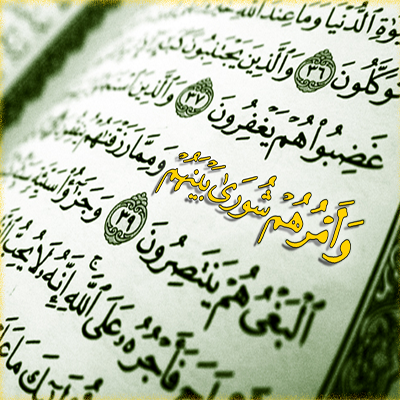 ٱلدُّنْيَا وَمَا عِندَ ٱللَّهِ
تَوَكَّلُونَ ٣٦ وَٱلَّذِينَ يَجْتَنِبُونَ
غَضِبُوا۟ هُمْ يَغْفِرُونَ ٣٧ وَٱلَّذِينَ
وَأَمْرُهُمْ شُورَىٰ بَيْنَهُمْ وَمِمَّا رَزَقْنَٰهُمْ
ٱلْبَغْىُ هُمْ يَنتَصِرُونَ ٣٩ وَجَزَٰٓؤُا۟
فَأَجْرُهُۥ عَلَى ٱللَّهِ ۚ إِنَّهُۥ لَا يُحِبُّ